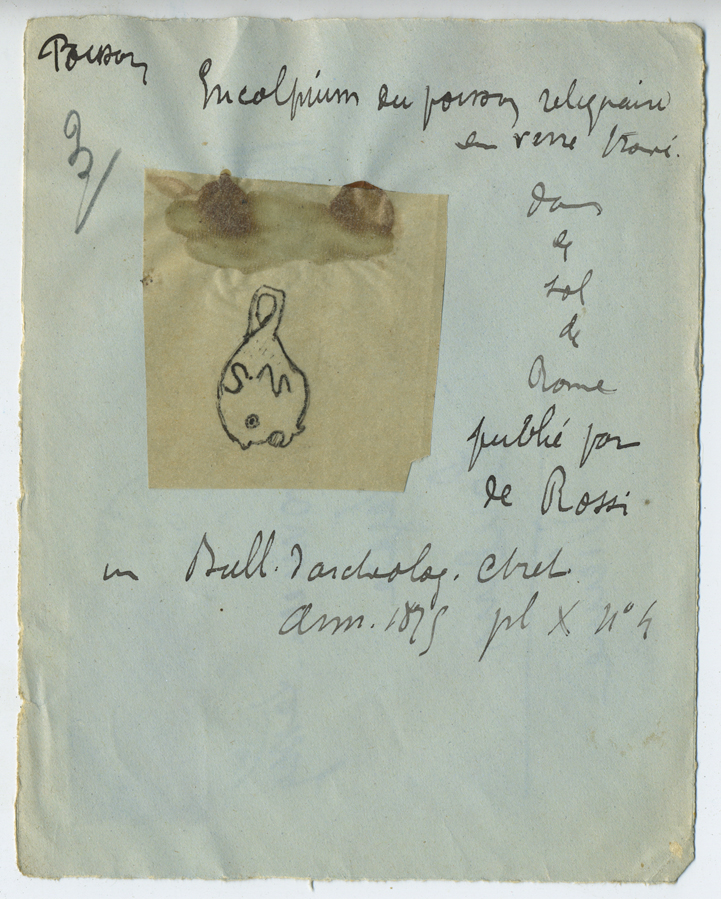 Poisson
Encolpium du poisson reliquaire
en verre trouvé.
3/
dans
le
sol
de
Rome
publié par
de Rossi
S. M
in Bull. d'archeolog. chret.
Ann. 1875 pl X n° 4